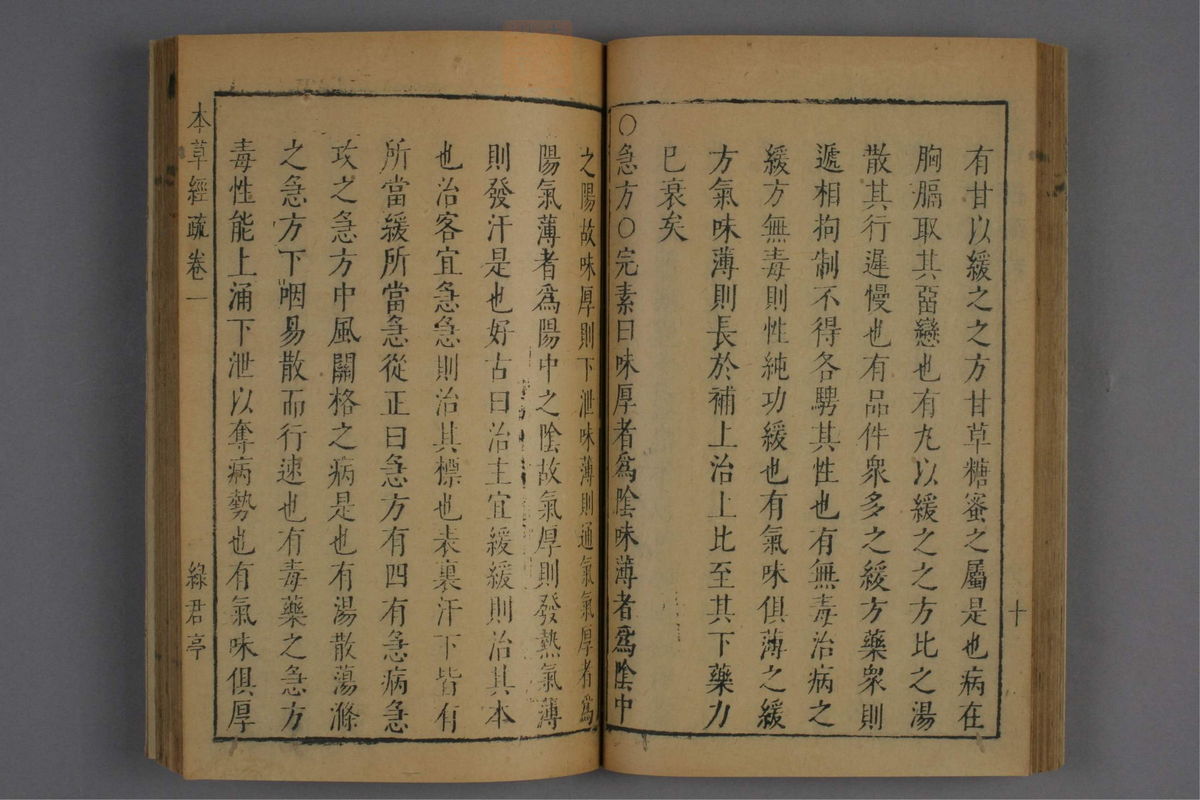 有甘以緩之之方甘草糖蜜之屬是也病在
胸膈取其畱戀也有丸以緩之之方比之湯
散其行遲慢也有品件衆多之緩方藥衆則
遞相拘制不得各騁其性也有無毒治病之
緩方無毒則性純功緩也有氣味俱薄之緩
方氣味薄則長於補上治上比至其下藥力
巳衰矣
○急方○完素曰味厚者爲陰味薄者爲陰中
十
之陽故味厚則下泄味薄則通氣氣厚者爲
陽氣薄者爲陽中之陰故氣厚則發熱氣薄
則發汗是也好古曰治主宜緩緩則治其本
也治客宜急急則治其標也表裏汗下皆有
所當緩所當急從正曰急方有四有急病急
攻之急方中風關格之病是也有湯散蕩滌
之急方下咽易散而行速也有毒藥之急方
毒性能上涌下泄以奪病勢也有氣味俱厚
本草經疏卷一
綠君亭